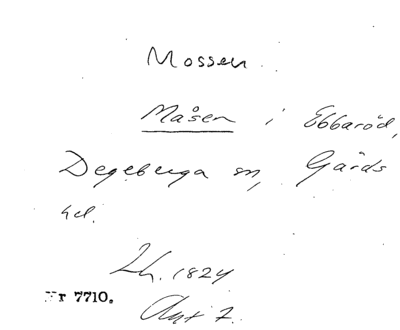 Mossen.
Måsen i Ebbaröd,
Degeberga sn, Gärds
hd.
Lh. 1824
Nr 7710.
Akt 7.